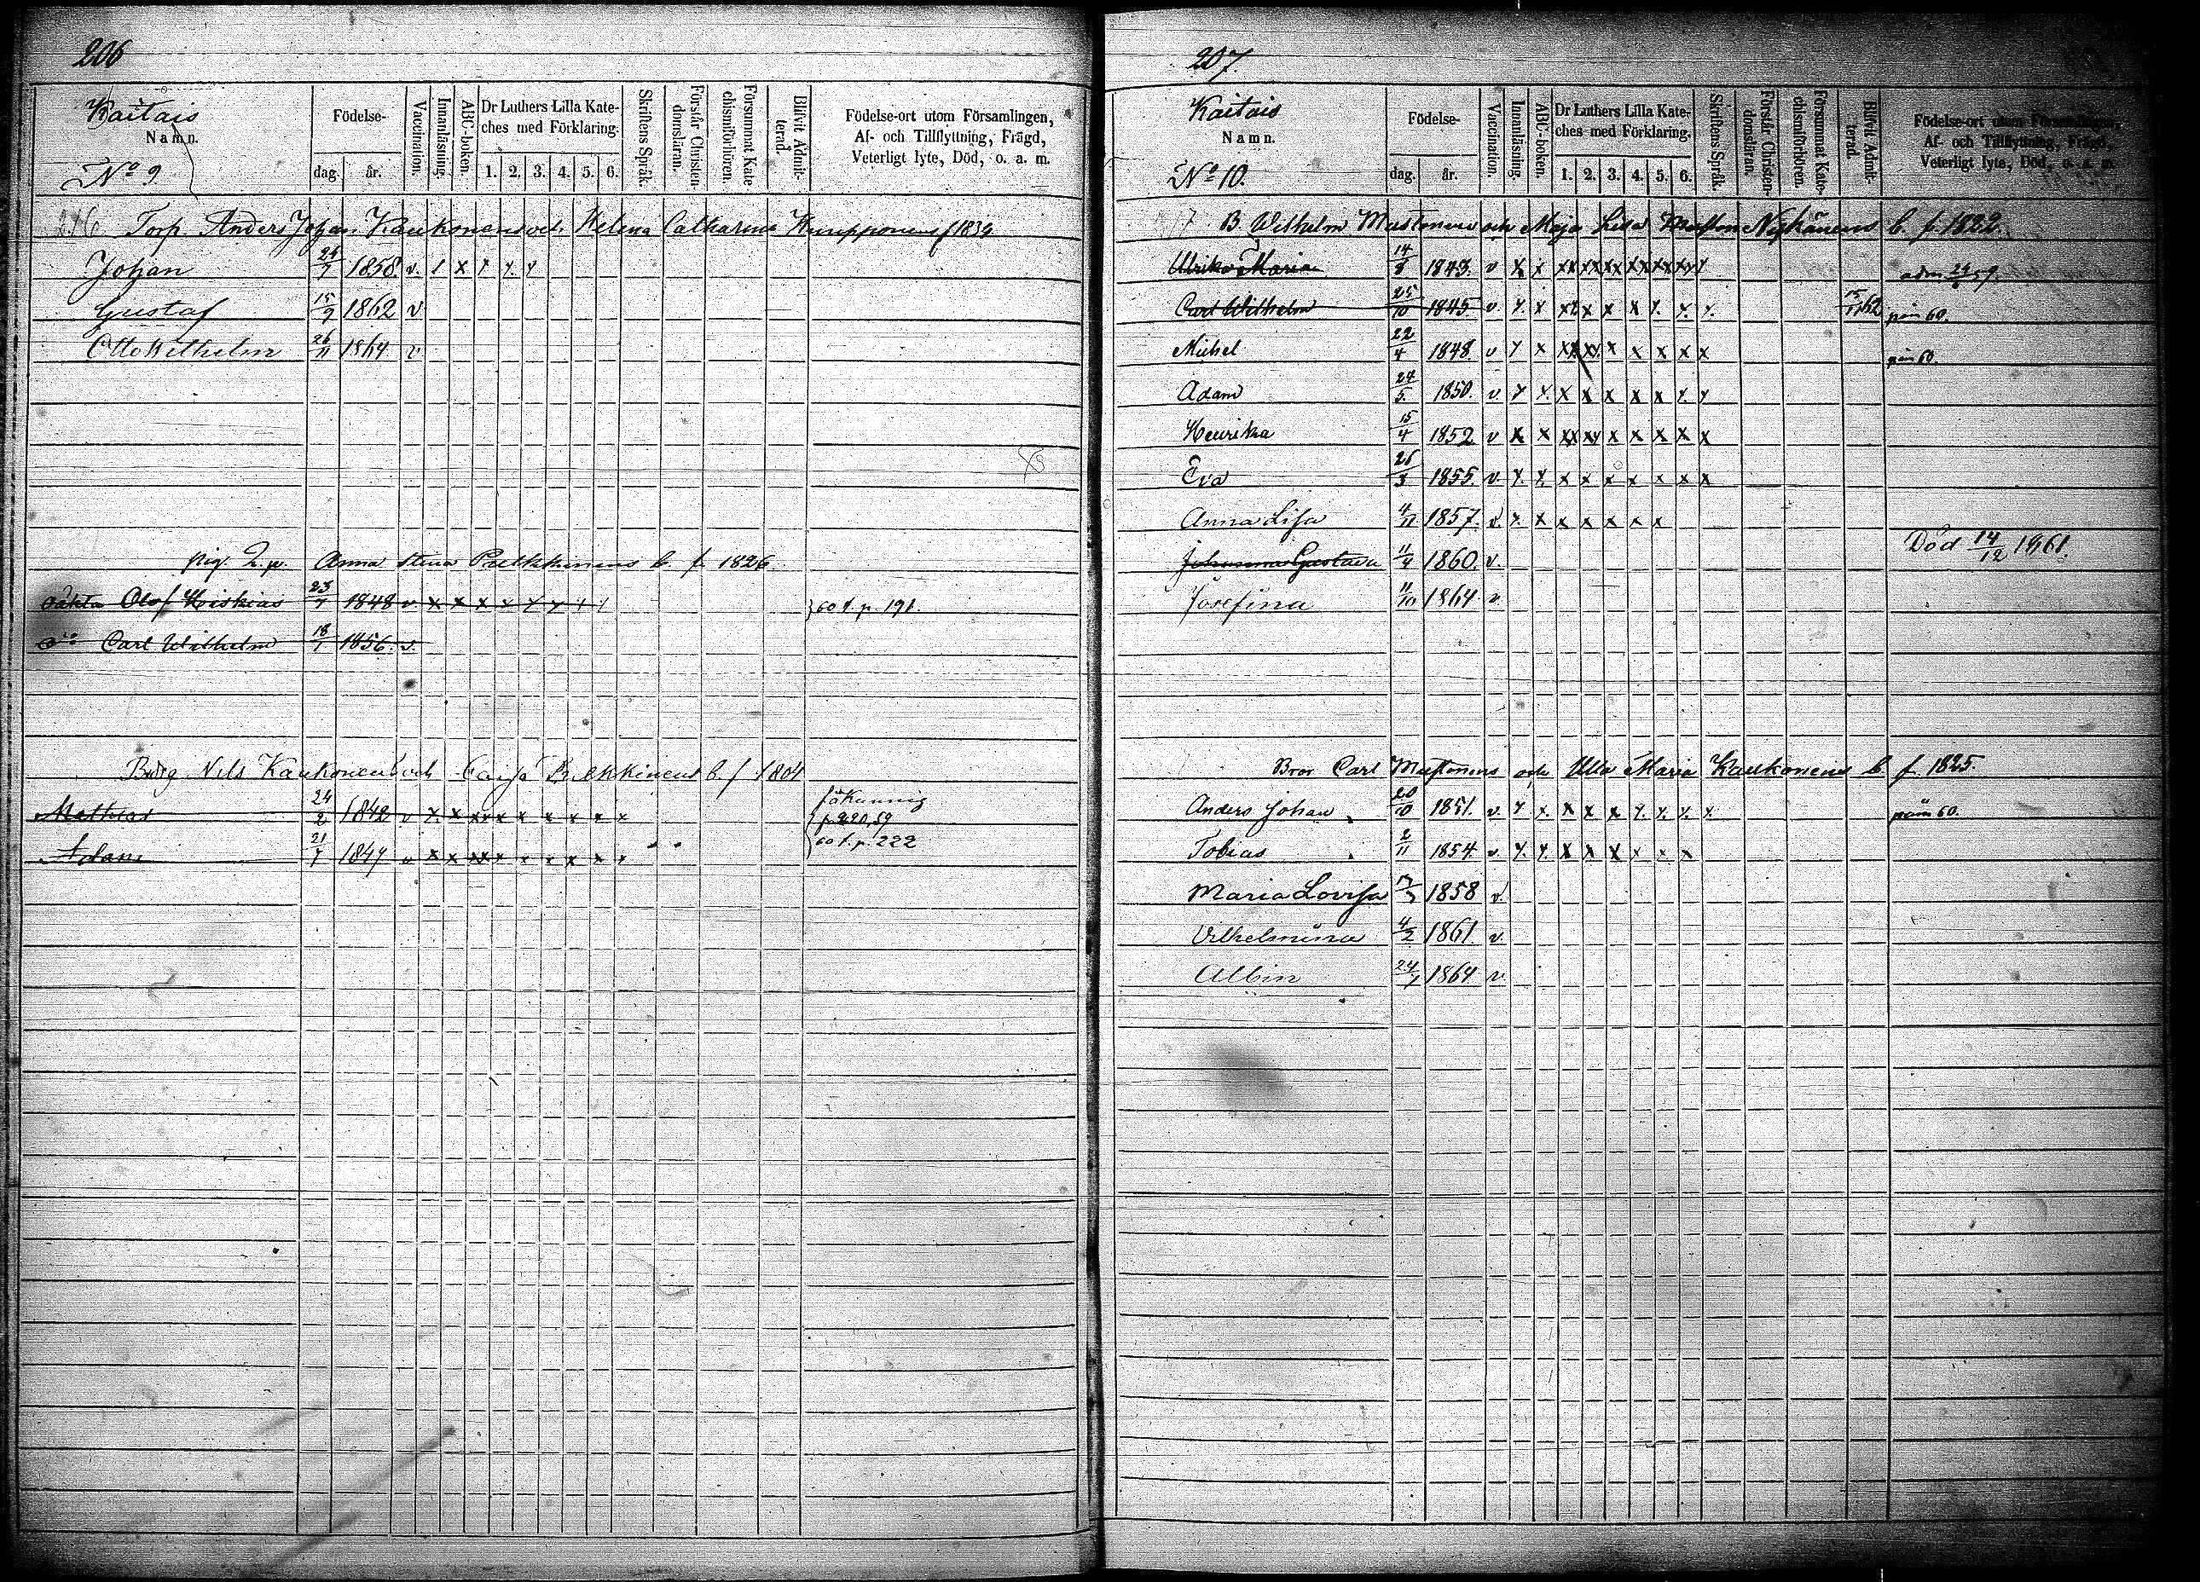 206
Kaitais
Namn.
No 9.
Födelse-
dag. år.
Vaccination.
Innanläsning.
ABC-boken.
Dr Luthers Lilla Kate-
ches med Förklaring.
1. 2. 3. 4. 5. 6.
Skriftens Språk.
Förstår Christen-
domsläran.
Försummat Kate
chismiförhören.
Blifvit Admit-
terad
Födelse-ort utom Församlingen,
Af- och Tillflyttning, Frägd,
Veterligt lyte, Död, o. a. m.
Torp. Anders Johan Kaukonens och Helena Catharina f 1834
Johan 24/7 1858. v. 1 x
Gustaf 15/9 1862 v
Otto Wilhelm 26/11 1864 v
pig. Anna Stina Pulkkinens b. f. 1826
oäkta Olof Hiskias 23/7 1848 v x x x x 60 t. p. 191.
do Carl Wilhelm 18/1 1856. v.
Nils Kaukonens och Caisa Pulkkinens b. f 1804
Mathias 24/2 1842 v x x xx x x x x x p 220, 59
Adam 21/7 1847 v x x xx x x x x x x 60 t. p. 222
207.
Kaitais
Namn.
No 10.
Födelse-
dag. år.
Vaccination.
Innanläsning.
ABC-boken.
Dr Luthers Lilla Kate-
ches med Förklaring.
1. 2. 3. 4. 5. 6.
Skriftens Språk.
Förstår Christen-
domsläran.
Försummat Kate-
chismiförhören.
Blifvit Admit-
terad.
Födelse-ort utom Församlingen,
Af- och Tillflyttning, Frägd,
Veterligt lyte, Död, o. a. m.
B. Wilhelm Mustonens och Maja Lisa Nykänens b. f. 1822.
Ulrika Maria 14/8 1843. v x x xx xx xx xx xx xx x
Carl Wilhelm 25/10 1845 v. x x xx x x x x x x 62 60.
Michel 22/4 1848 v x x xx xx x x x x x 60.
Adam 24/5. 1850. v x x x x x x x x x
Henrika 15/4 1852 v x x xx xx x x x x x
Eva 1855. v. x x x x x x x x x
Anna Lisa 1857. v. x x x x x x x
Johanna Gustava 11/9 1860. v. Död 14/12 1861.
Josefina 11/10 1864 v
Bror Carl Mustonens och Ulla Maria Kaukonens b. f. 1825.
Anders Johan 20/10 1851. v. x x x x x x x x x 60.
Tobias 2/11 1854. v. x x x x x x x x
Maria Lovisa 1858 v
Vilhelmina 4/2 1861 v.
Albin 24/1 1864 v